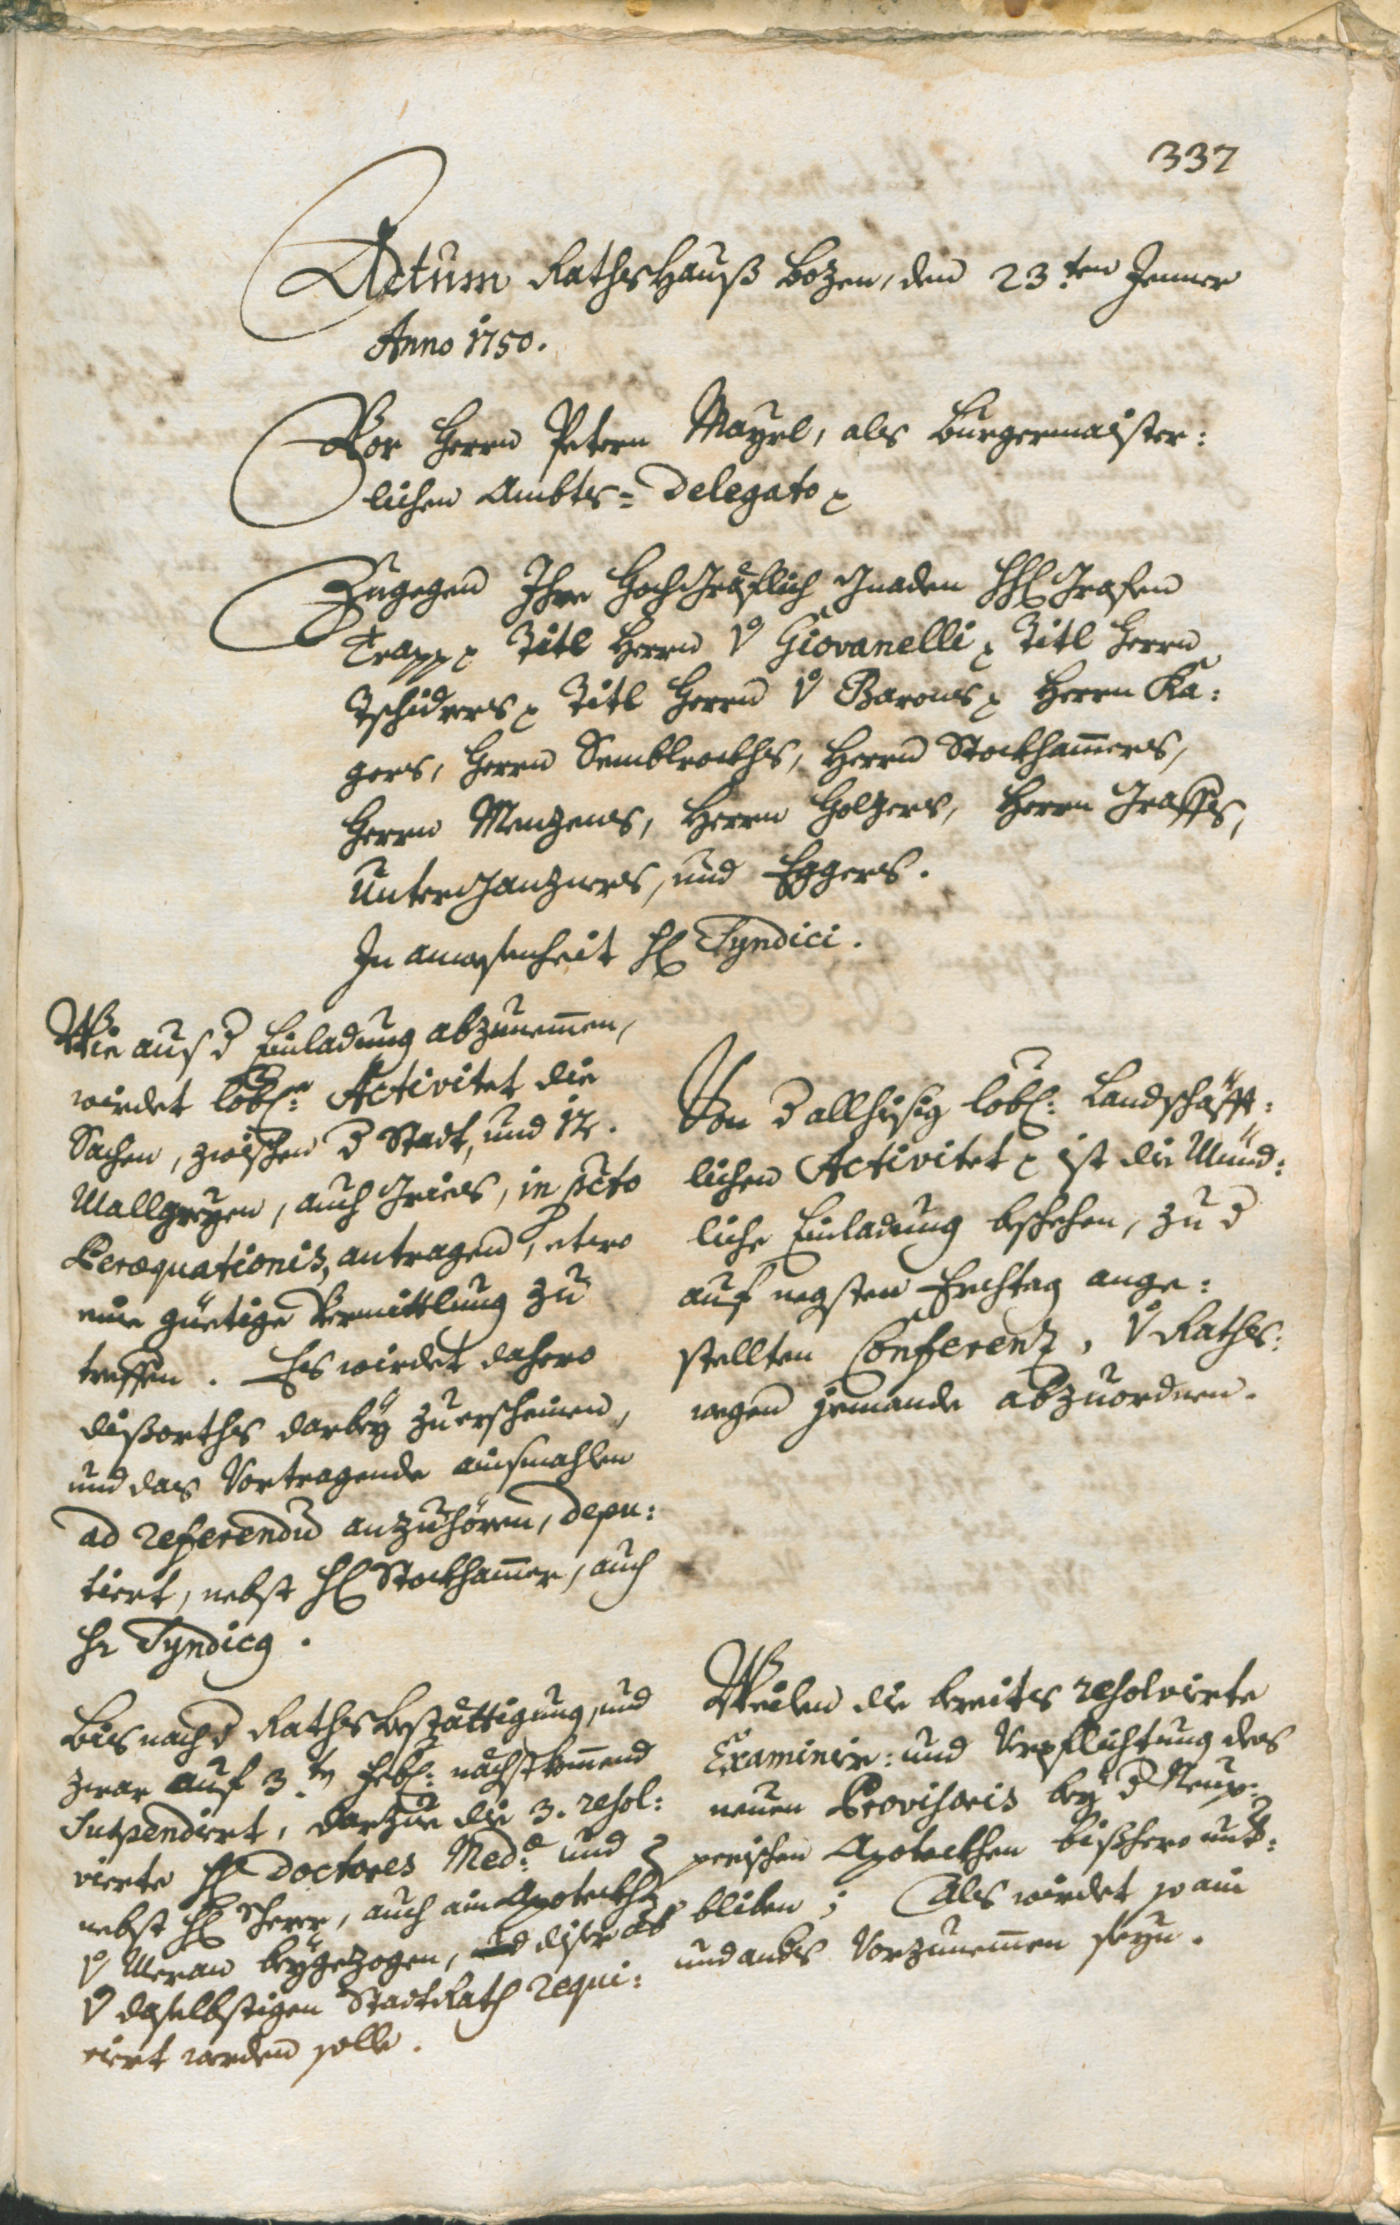 337
Actum RathsHauß Bozen, den 23.ten Jenner
Anno 1750.
Vor Herrn Petern Mayrl, als Burgermaister:
lichen Ambts= Delegato p
Zugegen Ihro HochGräflich Gnaden HH Grafen
Trapp p Titl Herrn v Giovanelli p Titl Herrn
Tschiderers p Titl Herrn v Barons p Herrn Ka:
gers, Herrn Semblrockhs, Herrn Stockhamers,
Herrn Menzens, Herrn Holzers, Herrn Graffs,
UnterGanzners, und Eggers.
In anwesenheit H Syndici.
Wie aus d Einladung abzunemen,
wirdet löbl: Activitet die
Sachen, zwischen d Stadt, und 12.
Mallgreyen, auch Gries, in pcto
Peræquationis, antragen, etwo
eine güetige Vermittlung zu
treffen. Es wirdet dahero
dißorths darbey zuerscheinen,
und das Vortragende ainsmahlen
ad referendu anzuhören, depu:
tiert, nebst H Stockhamer, auch
Hr Syndicq.
Von d allhisig löbl: Landschäfft:
lichen Activitet p ist die Münd:
liche Einladung beschehen, zu d
auf negsten Erchtag ange:
stellten Conferenz, v Raths:
wegen jemande abzuordnen.
Bis nach d Raths Bestättigung, und
zwar auf 3.ten Febr: nächstkomend
Suspendiert, darzue die 3. resol:
vierte HH Doctores Med: und
nebst H Scherer, auch ain Apoteckher
v Meran beygezogen, und diser
v daselbstigen StadtRath requi:
riert werden solle.
Weilen die bereits resolvierte
Examinir: und Verpflichtung des
neuen Provisoris bey d
perischen Apoteckhen bißhero undter:
bliben; Als wirdet so ain
und anders Vorzunemen seyn.